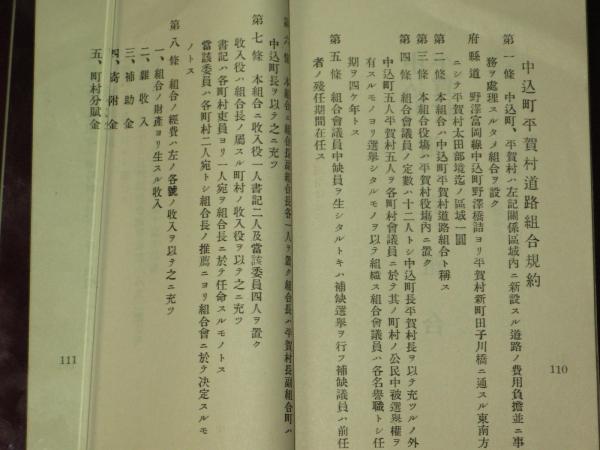 中込町平賀村道路組合規約
第一條 中込町、平賀村ハ左記關係區域內ニ新設スル道路ノ費用負擔並ニ事
務ヲ處理スルタメ組合ヲ設ク
府縣道 野澤富岡線中込町野澤橋詰ヨリ平賀村新町田子川橋ニ通スル東南方
ニシテ平賀村太田部境迄ノ區域一圓
第二條 本組合ハ中込町平賀村道路組合ト稱ス
第三條 本組合役場ハ平賀村役場內ニ置ク
第四條 組合會議員ノ定數ハ十二人トシ中込町長平賀村長ヲ以テ充ツルノ外
中込町五人平賀村五人ヲ各町村會議員ニ於テ其ノ町村ノ公民中被選擧權ヲ
有スルモノヨリ選擧シタルモノヲ以テ組織ス組合會議員ハ各名譽職トシ任
期ヲ四ケ年トス
第五條 組合會議員中缺員ヲ生シタルトキハ補缺選擧ヲ行フ補缺議員ハ前任
者ノ殘任期間在任ス
110
第六條 本組合ニ組合長副組合長各一人ヲ置ク組合長ハ平賀村長副組合町ハ
中込町長ヲ以テ之ニ充ツ
第七條 本組合ニ收入役一人書記二人及當該委員四人ヲ置ク
收入役ハ組合長ノ屬スル町村ノ收入役ヲ以テ之ニ充ツ
書記ハ各町村吏員ヨリ一人宛ヲ組合長ニ於テ任命スルモノトス
當該委員ハ各町村二人宛トシ組合長ノ推薦ニヨリ組合會ニ於テ決定スルモ
ノトス
第八條 組合ノ經費ハ左ノ各號ノ收入ヲ以テ之ニ充ツ
一、組合ノ財產ヨリ生スル收入
二、雜收入
三、補助金
四、寄附金
五、町村分賦金
111